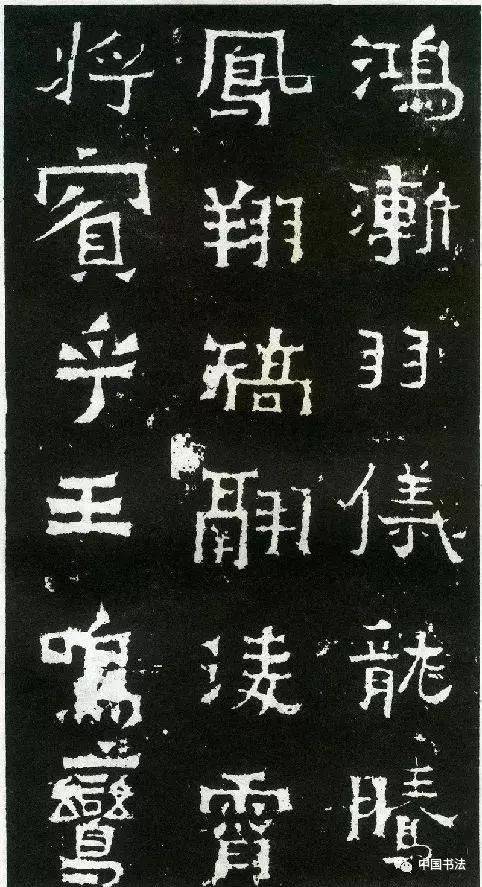 鴻漸羽儀龍騰
鳳翔矯翮淩霄
將賓乎王鳴鸞
中国书法